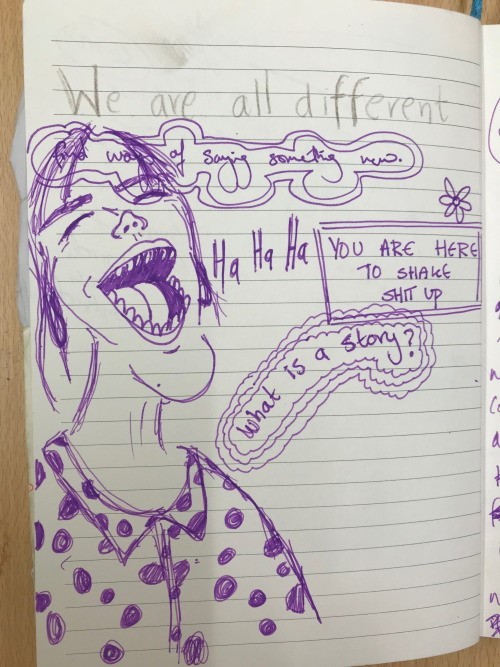 We are all different
Find ways of saying something new.
Ha Ha Ha
YOU ARE HERE
TO SHAKE
SHIT UP
What is a story?